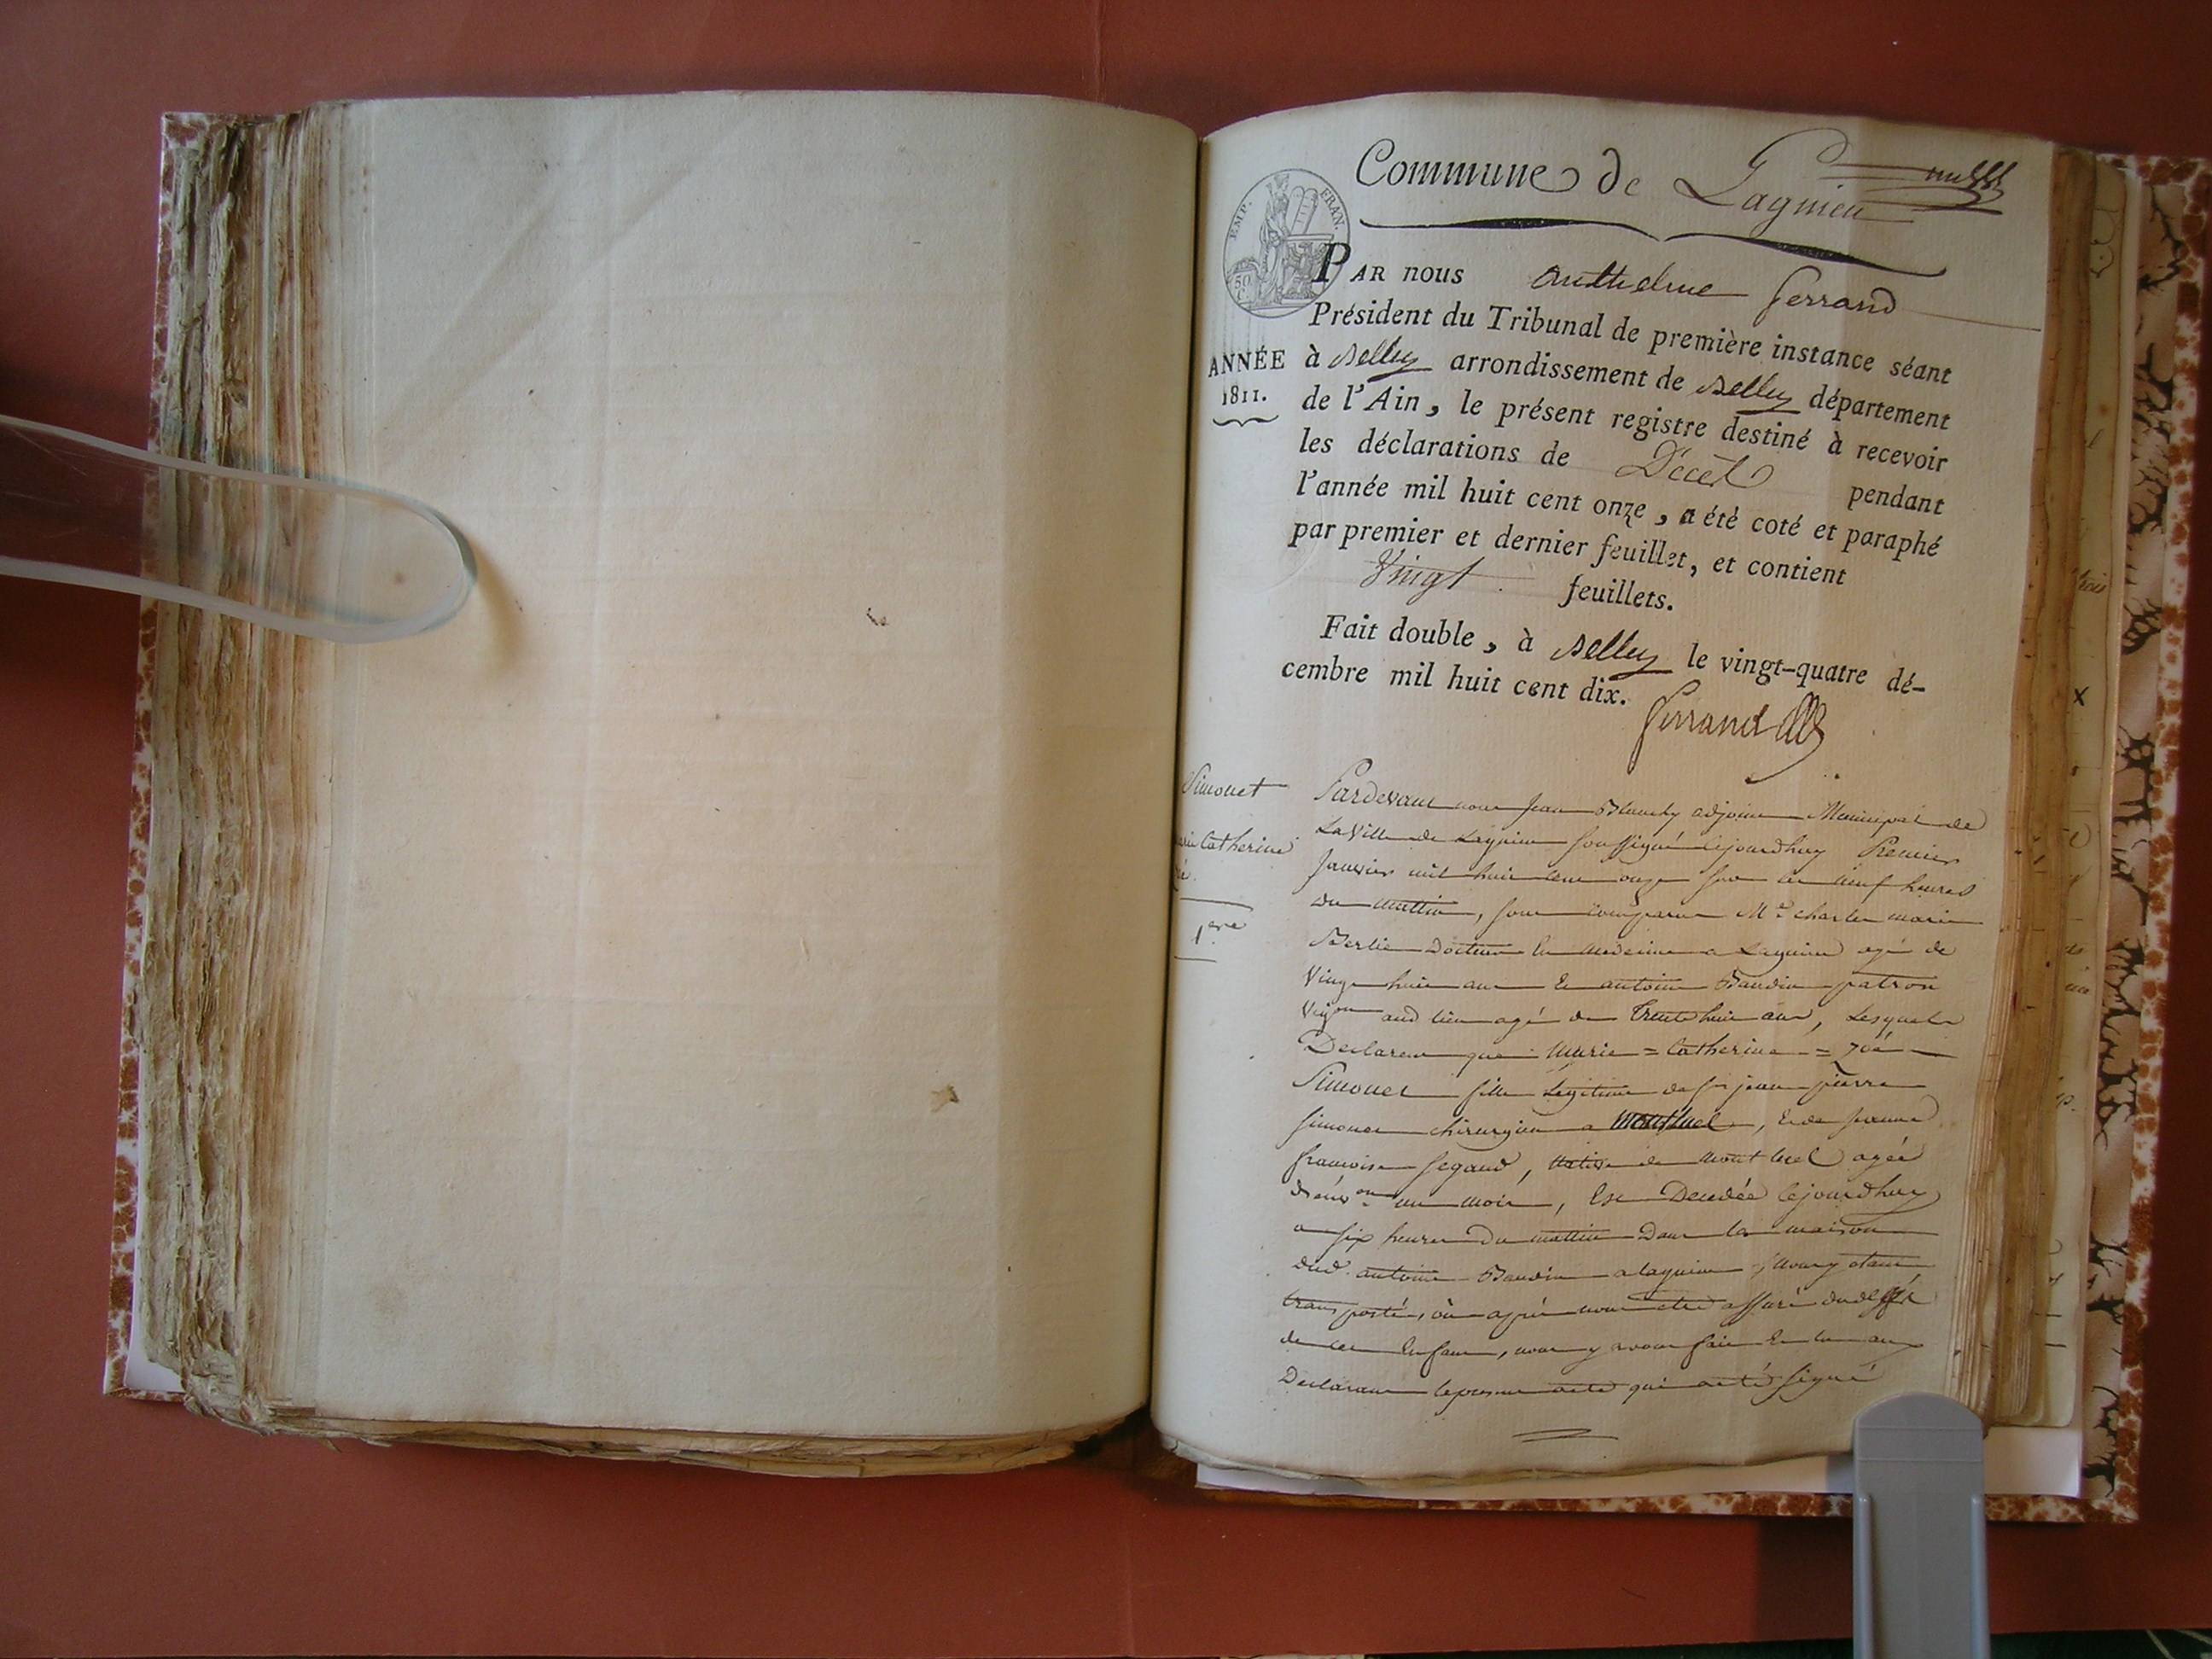 Commune de Lagnieu
EMP. FRAN.
50
C.
PAR nous Anthelme Ferrand
Président du Tribunal de première instance séant
ANNÉE
1811.
à Belley arrondissement de Belley département
de l'Ain, le présent registre destiné à recevoir
les déclarations de Décès pendant
l'année mil huit cent onze, a été coté et paraphé
par premier et dernier feuillet, et contient
Vingt feuillets.
Fait double, à Belley le vingt-quatre dé-
cembre mil huit cent dix.
Ferrand
Simonet
Catherine
1ere
Pardevant nous Jean Blanchy adjoint Municipal de
La Ville de Lagnieu soussigné cejourdhuy Premier
Janvier mil huit cent onze sur les neuf heures
du mattin, sont comparus Mr charles marie
Berlie Docteur en medecine a Lagnieu agé de
Vingt huit ans et antoine Baudin patron
aud lieu agé de trente huit ans, Lesquels
Declarent que Marie = Catherine = zoé
Simonet fille Legitime de jean pierre
simonet chirurgien a montluel, et de jeanne
francoise segaud, native de montluel agée
d'env.on un mois, Est Decedée cejourdhuy
a six heures du mattin Dans la maison
dud. antoine Baudin a lagnieu, nous y etant
transporté, où après nous etre assuré du
de cet Enfant, nous y avons fait et lu aux
Declarans le present acte qui a eté signé